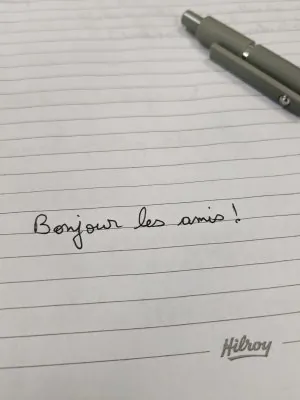 Bonjour les amis !
Hilroy